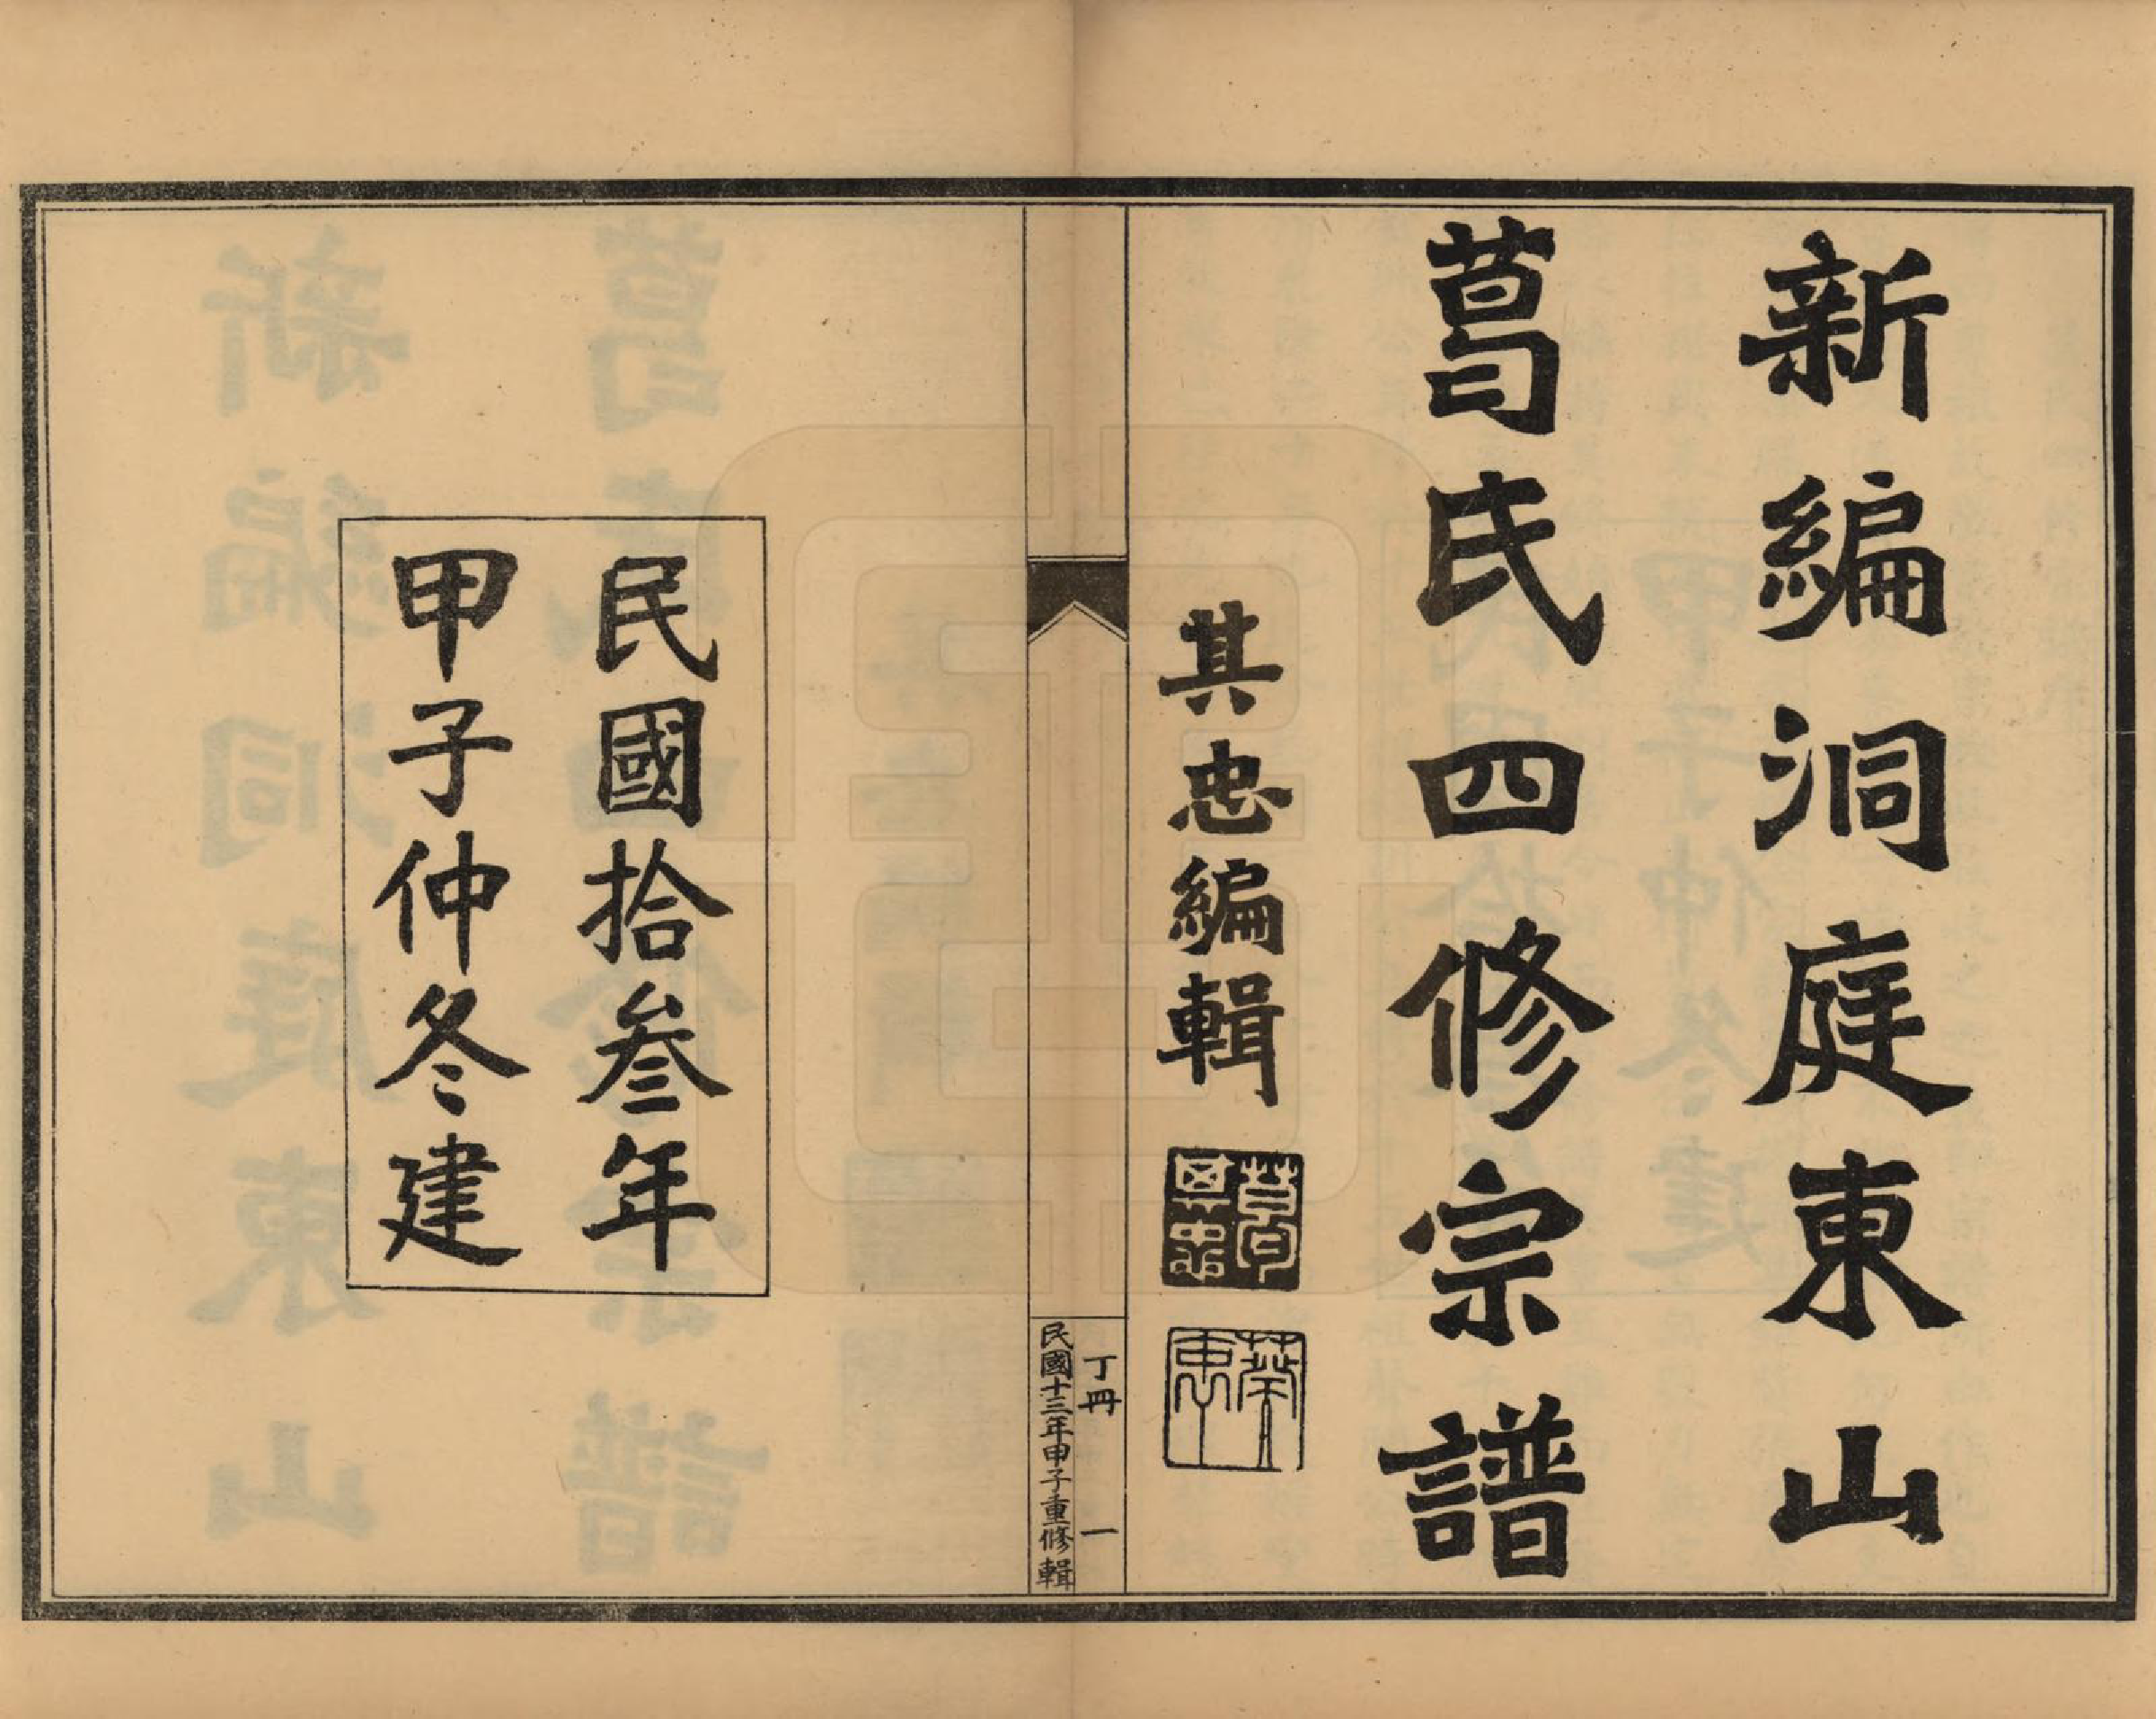 新編洞庭東山
葛氏四修宗譜
其忠編輯
丁冊 一
民國十三年甲子重修輯
民國拾叁年
甲子仲冬建